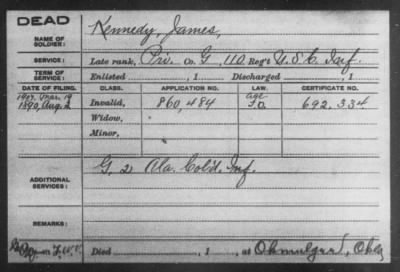 DEAD
NAME OF SOLDIER: Kennedy, James,
SERVICE: Late rank, Priv. Co. G, 110 Reg't U.S.C. Inf.
TERM OF SERVICE: Enlisted , 1 Discharged , 1
DATE OF FILING. CLASS. APPLICATION NO. LAW. CERTIFICATE NO.
1907, Mar. 19 age
1890, Aug. 2 Invalid, 860,484 692.334
Widow,
Minor,
ADDITIONAL SERVICES: G, 2 Ala. Col'd. Inf.
REMARKS:
Died , 1 , at Okla